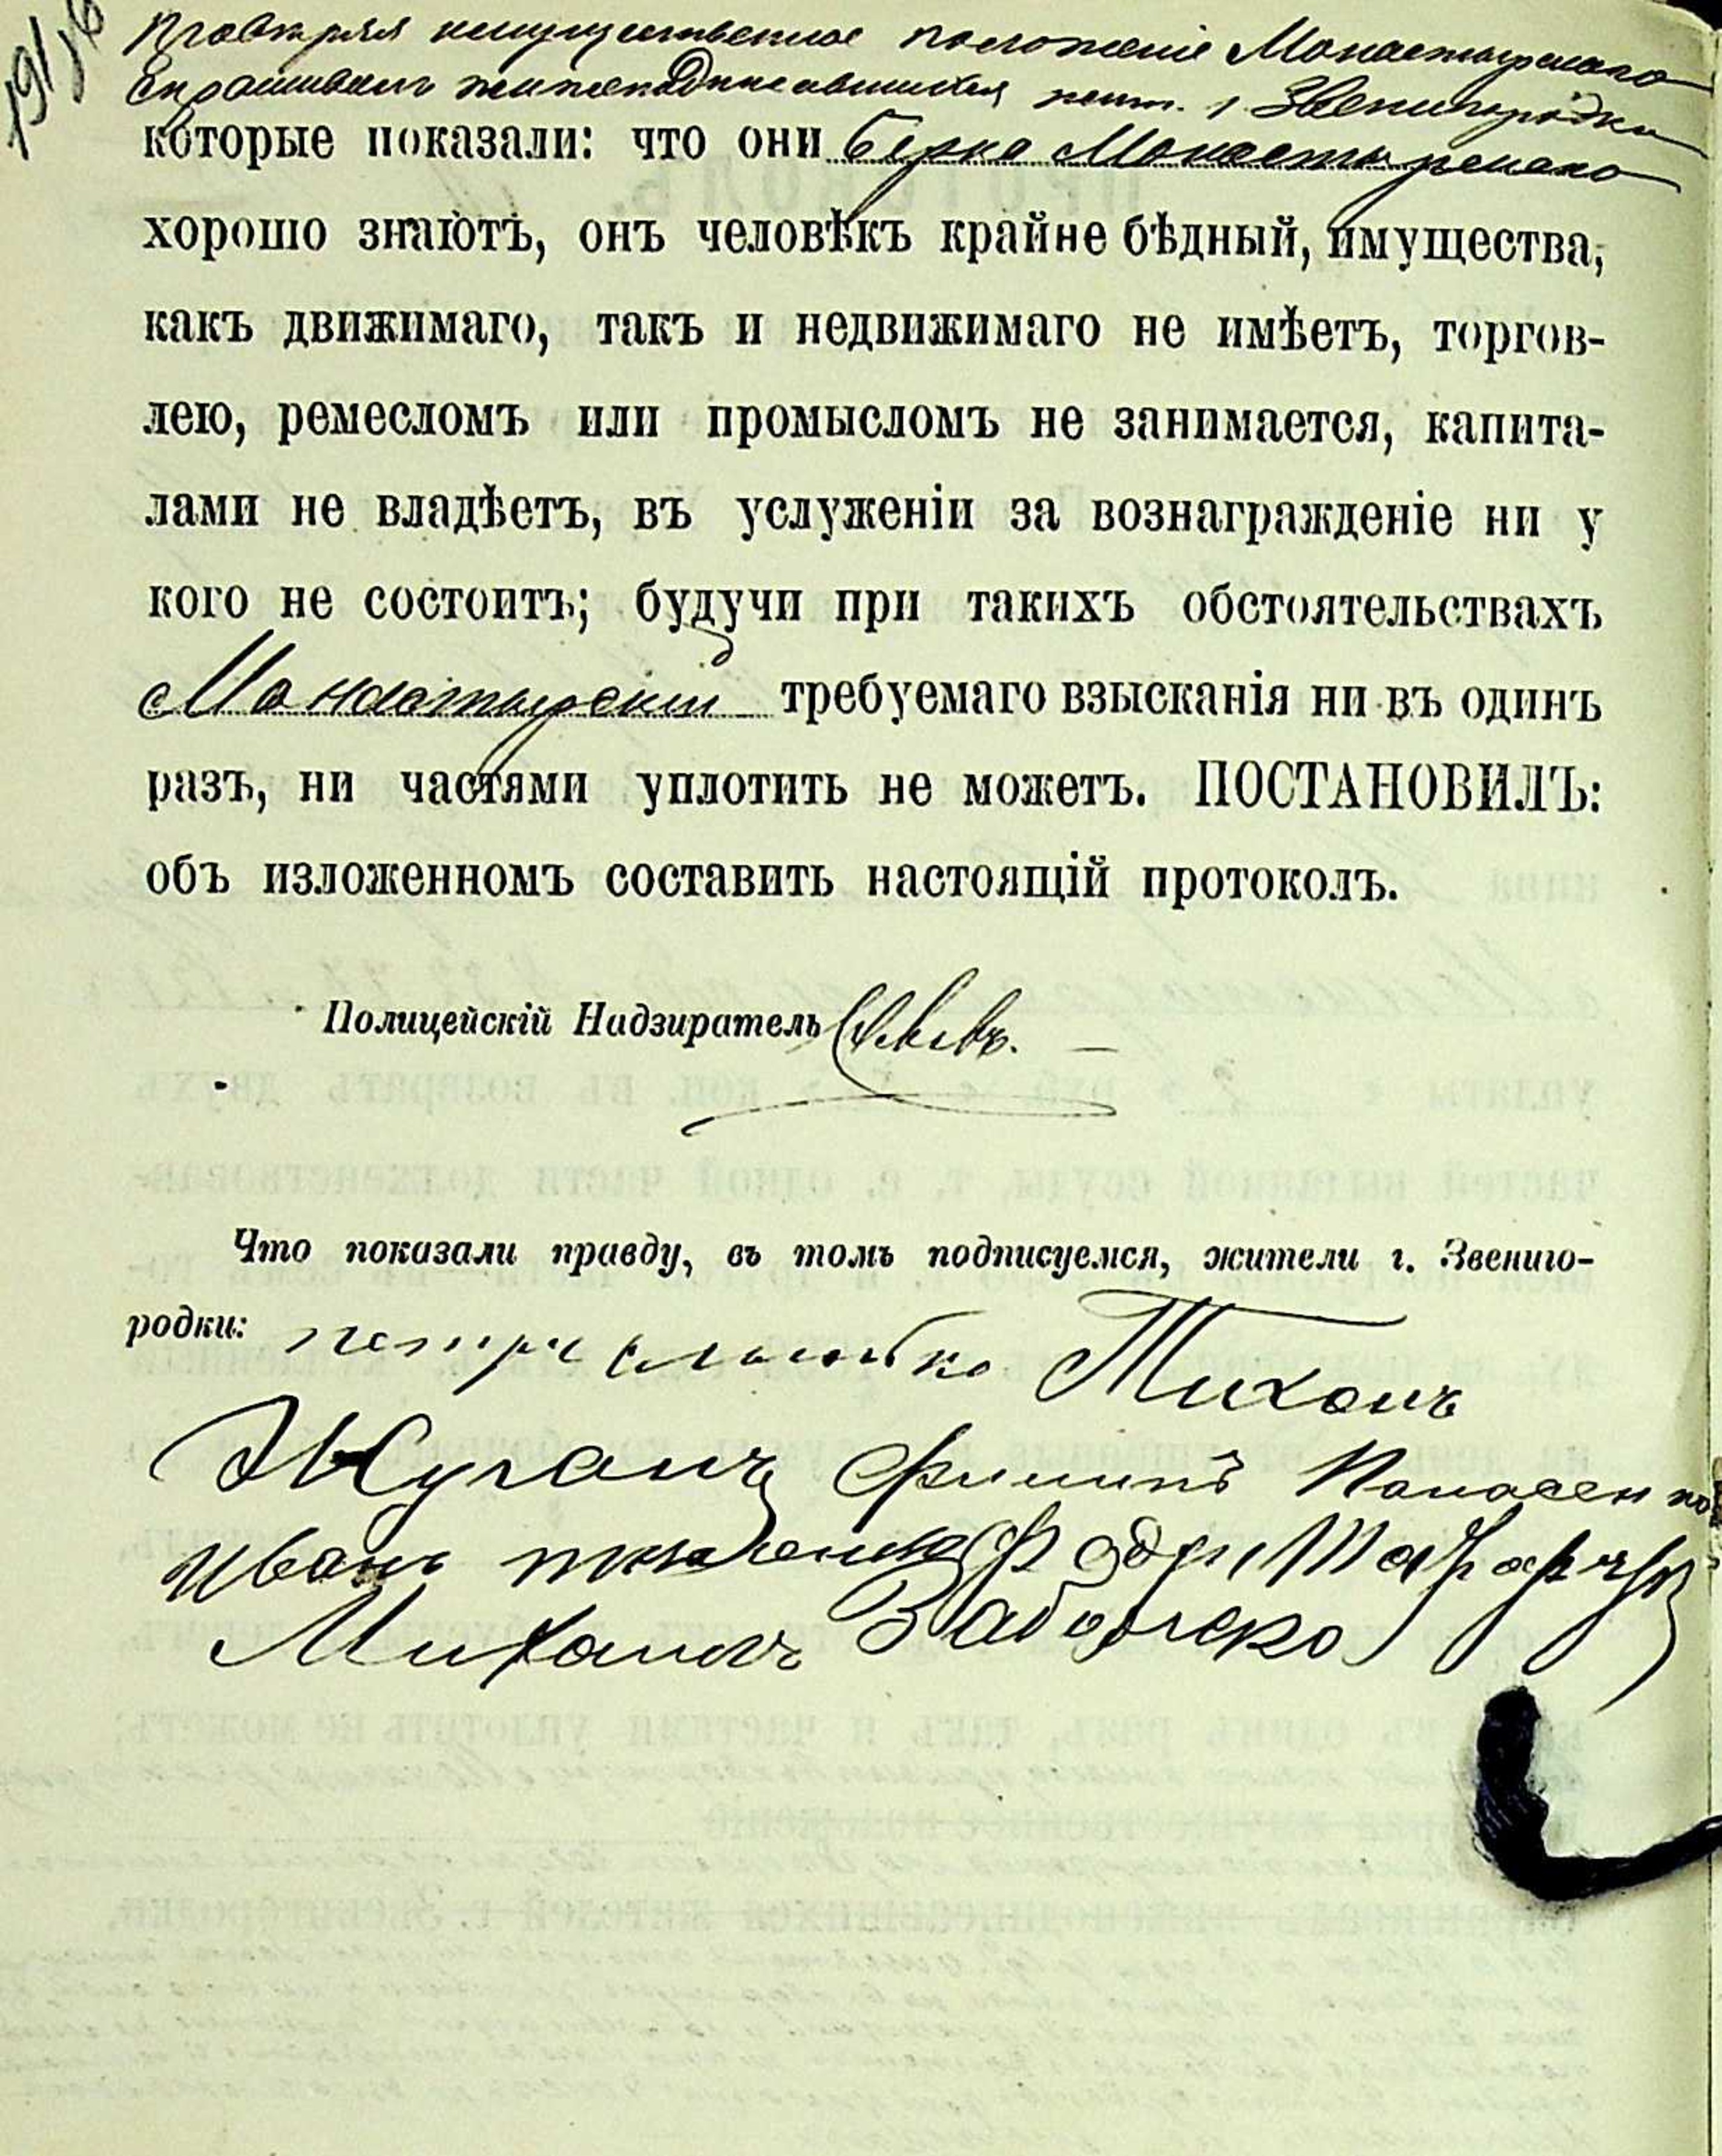 191/16
Провѣряя имущественное положеніе Монастырскаго
спрашивалъ нижеподписавшихся жит. г. Звенигородки
которые показали: что они Берка Монастырскаго
хорошо знаютъ, онъ человѣкъ крайне бѣдный, имущества,
какъ движимаго, такъ и недвижимаго не имѣетъ, торгов-
лею, ремесломъ или промысломъ не занимается, капита-
лами не владѣетъ, въ услуженіи за вознагражденіе ни у
кого не состоитъ; будучи при такихъ обстоятельствахъ
Монастырскій требуемаго взысканія ни въ одинъ
разъ, ни частями уплотить не можетъ. ПОСТАНОВИЛЪ:
объ изложенномъ составить настоящій протоколъ.
Полицейскій Надзиратель
Что показали правду, въ томъ подписуемся, жители г. Звениго-
родки: Тихонъ
Жуганъ Филипъ Панасенко
Иванъ
Михаилъ